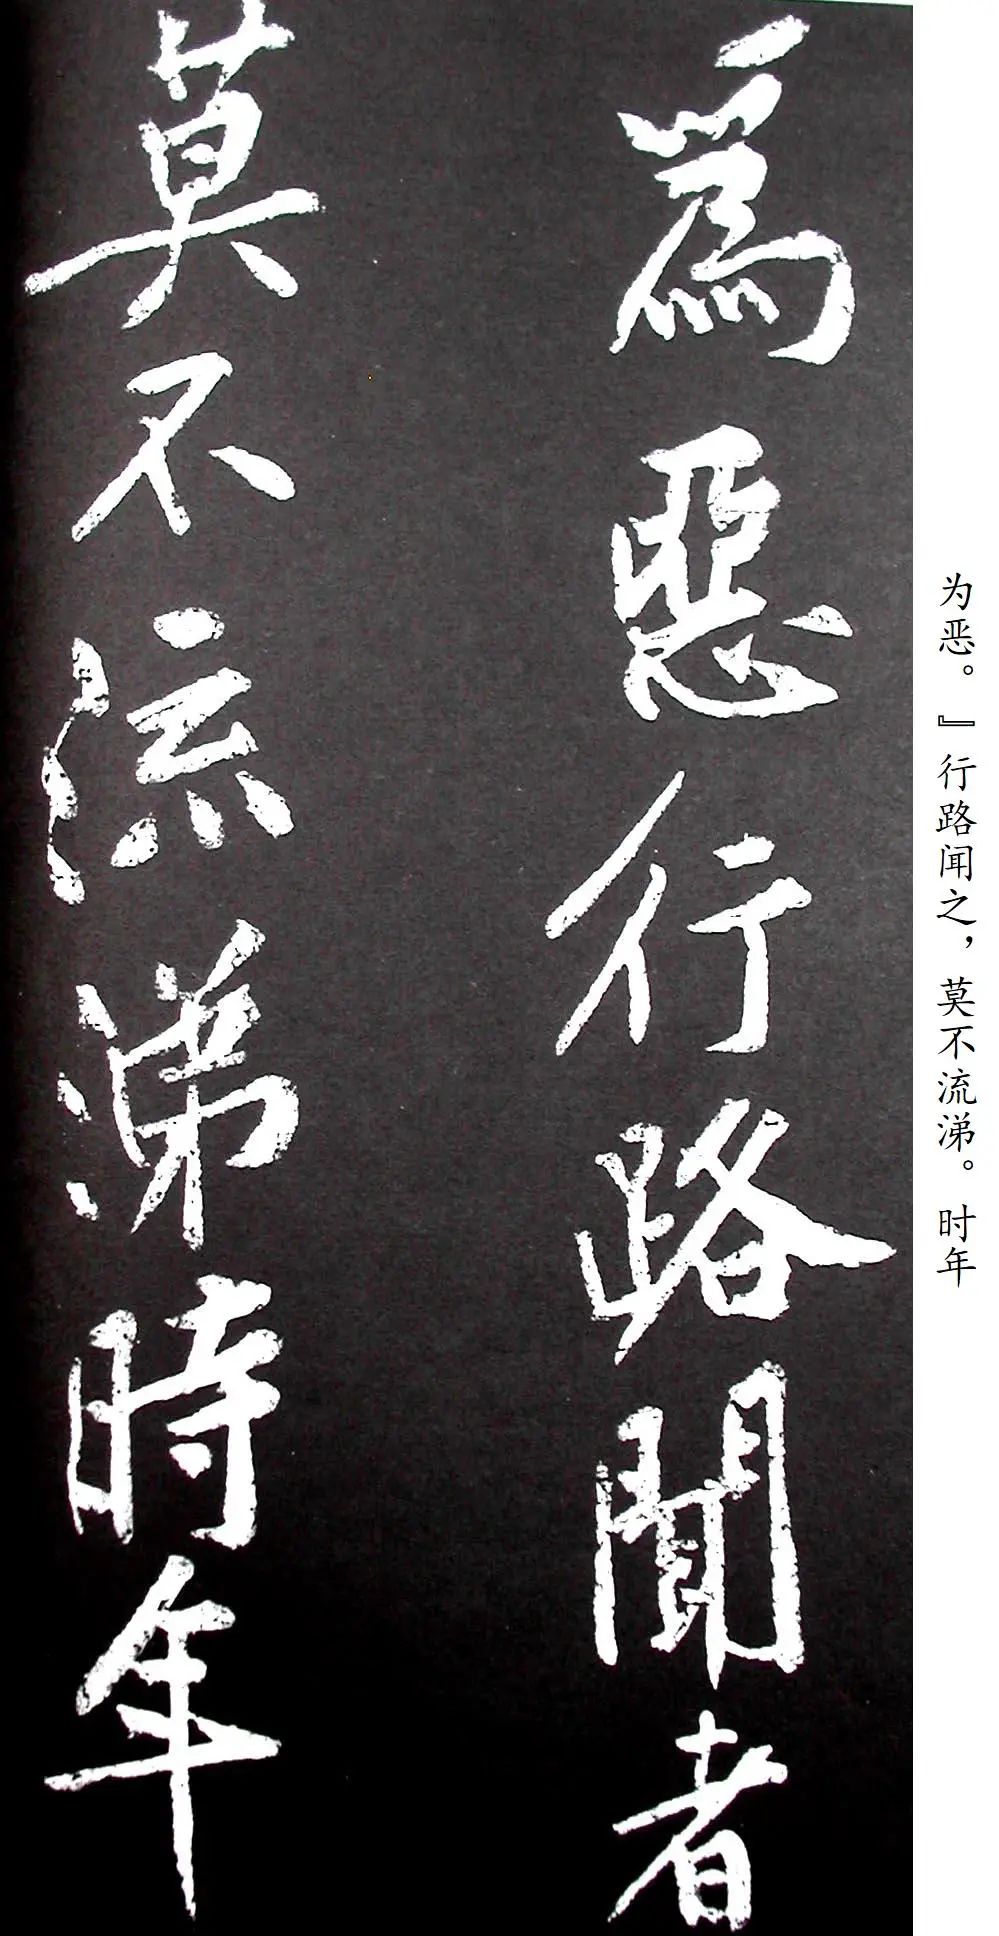 为恶。』行路闻之，莫不流涕。时年
為惡行路聞者
莫不流涕時年